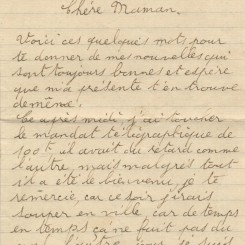 Chère Maman.
Voici ces quelques mots pour
te donner de mes nouvelles qui
sont toujours bonnes et espère
que ma présente t'en trouve
de même.
Ce après midi j'ai touché
le mandat télégraphique de
100f, il avait du retard comme
l'autre, mais malgrès tout
il a été le bienvenu, je te
remercie, car ce soir j'irais
souper en ville car de temps
en temps ça ne fait pas du